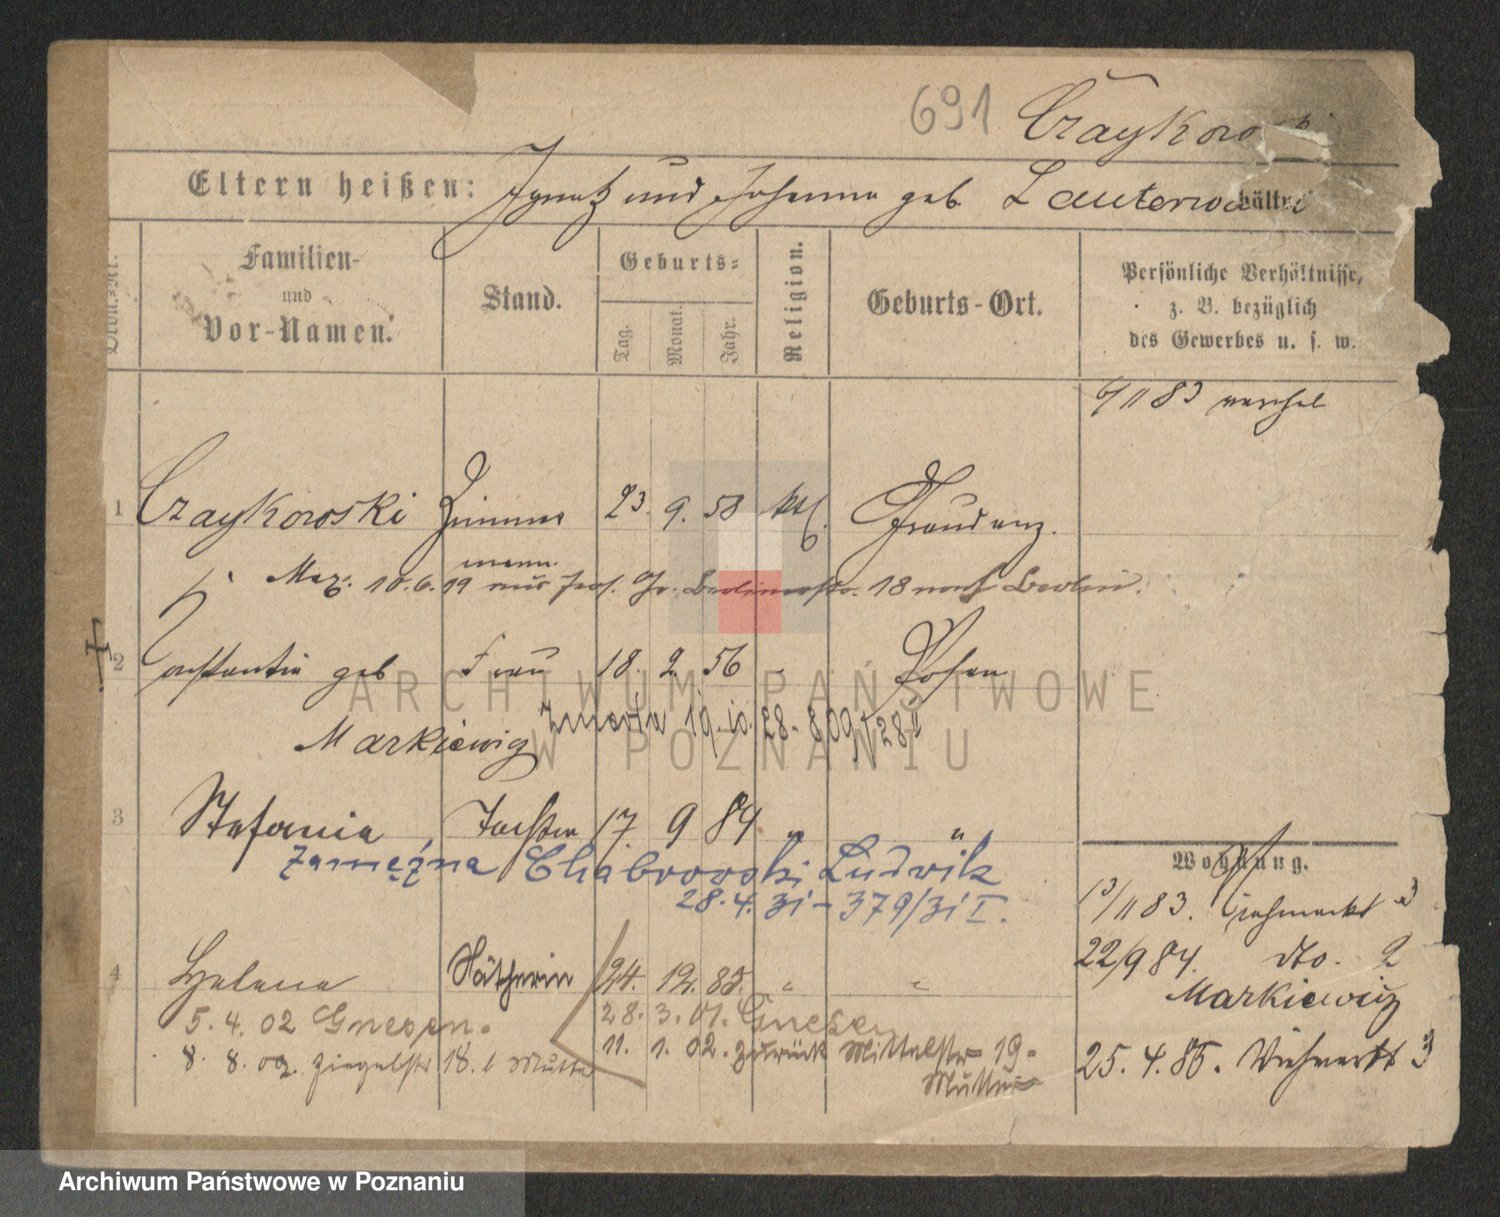 691 Czaykowski
Eltern heißen: Ignatz und Johanna geb. Lauterwald
Ordn.-Nr.
Familien- und Vor-Namen.
Stand.
Geburts-
Tag. Monat. Jahr.
Religion.
Geburts-Ort.
Persönliche Verhältnisse,
z. B. bezüglich
des Gewerbes u. s. w.
6/11 83
1 Czaykowski Zimmer 23. 9. 58 kath. Graudenz.
mann.
10.6.19 aus Berlinerstr. 18 nach Berlin.
2 Constantia geb Frau 18. 2. 56 " Posen
Markiewicz
Zmarła 19.10.28.
3 Stefania Tochter 17. 9 84 " "
Zamężna Chabrowski Ludwik
28.4.31 - 379/31 I.
4 Helena Nätherin 24. 12. 85. " "
5. 4. 02 Gnesen. 28. 3. 01. Gnesen
8. 8. 02. Ziegelstr 18. b Mutter 11. 1. 02. zurück Mittelstr 19-
Mutter
Wohnung.
13/11 83. Viehmarkt 3
22/9 84. dto. 2
Markiewicz
25. 4. 85. Viehmarkt 3
ARCHIWUM PAŃSTWOWE
W POZNANIU
Archiwum Państwowe w Poznaniu